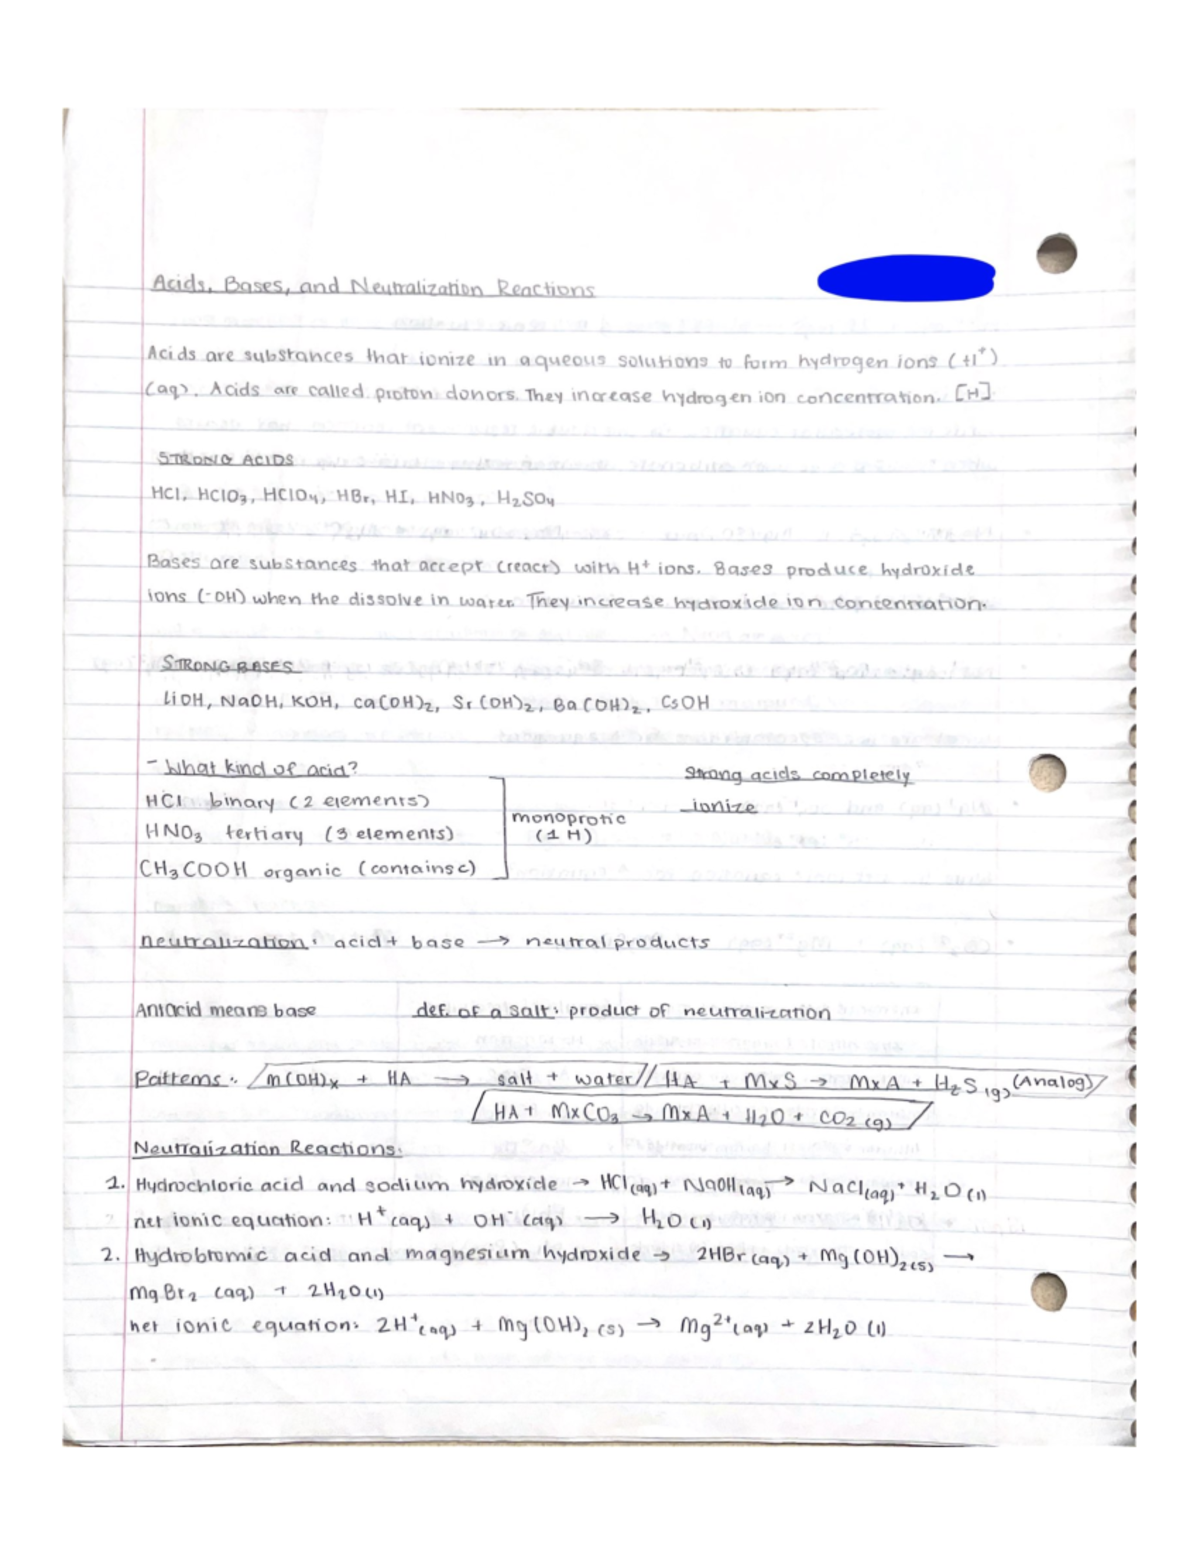 Acids, Bases, and Neutralization Reactions
Acids are substances that ionize in aqueous solutions to form hydrogen ions (H⁺)
(aq). Acids are called proton donors. They increase hydrogen ion concentration. [H]
STRONG ACIDS
HCl, HClO₃, HClO₄, HBr, HI, HNO₃, H₂SO₄
Bases are substances that accept (react) with H⁺ ions. Bases produce hydroxide
ions (⁻OH) when the dissolve in water. They increase hydroxide ion concentration.
STRONG BASES
LiOH, NaOH, KOH, Ca(OH)₂, Sr(OH)₂, Ba(OH)₂, CsOH
- What kind of acid?
HCl binary (2 elements)
HNO₃ tertiary (3 elements)
CH₃COOH organic (contains C)
monoprotic
(1 H)
Strong acids completely
ionize
neutralization: acid + base → neutral products
Antacid means base def. of a salt: product of neutralization
Patterns: M(OH)ₓ + HA → salt + water // HA + MxS → MxA + H₂S (g) (Analog)
HA + MxCO₃ → MxA + H₂O + CO₂ (g)
Neutralization Reactions:
1. Hydrochloric acid and sodium hydroxide → HCl(aq) + NaOH(aq) → NaCl(aq) + H₂O(l)
net ionic equation: H⁺(aq) + OH⁻(aq) → H₂O(l)
2. Hydrobromic acid and magnesium hydroxide → 2HBr(aq) + Mg(OH)₂(s) →
MgBr₂ (aq) + 2H₂O(l)
net ionic equation: 2H⁺(aq) + Mg(OH)₂ (s) → Mg²⁺(aq) + 2H₂O (l)